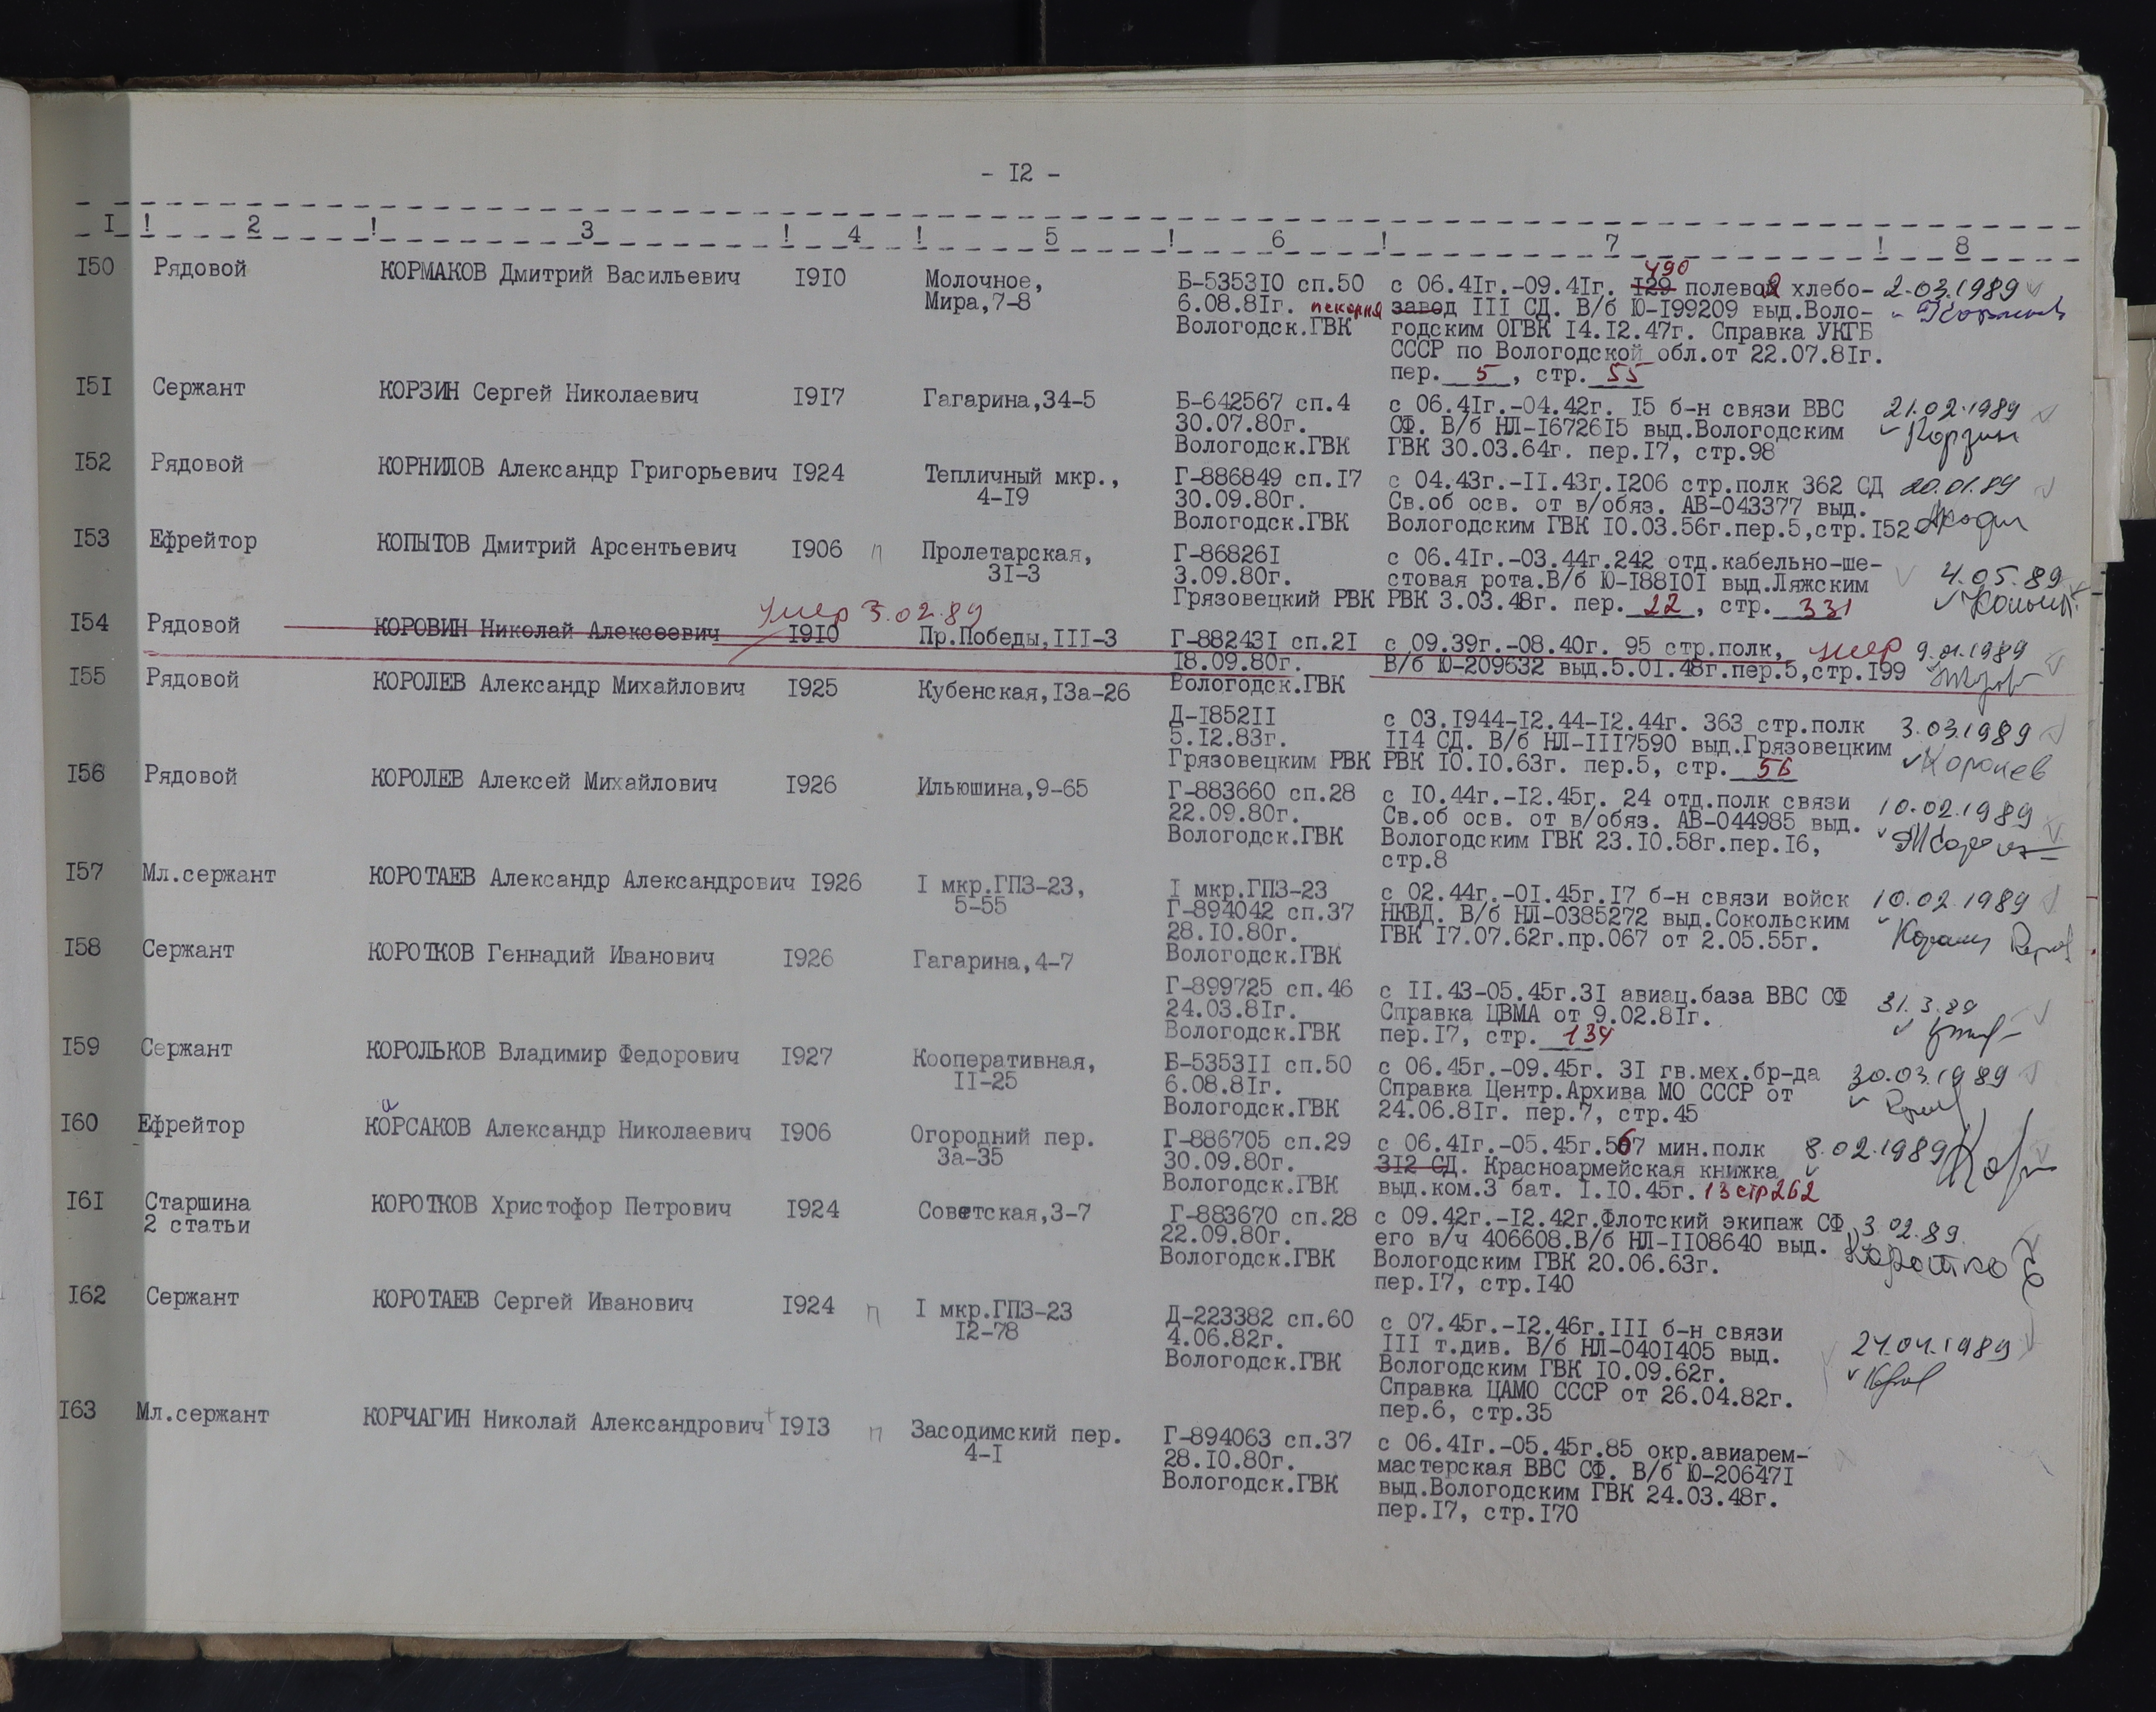 - I2 -
I ! 2 ! 3 ! 4 ! 5 ! 6 ! 7 ! 8
I50 Рядовой КОРМАКОВ Дмитрий Васильевич I9I0 Молочное, Б-5353I0 сп.50 с 06.4Iг.-09.4Iг. I29 490 полевой хлебо- 2.03.1989
Мира,7-8 6.08.8Iг. пекарня завод III СД. В/б Ю-I99209 выд.Воло-
Вологодск.ГВК годским ОГВК I4.I2.47г. Справка УКГБ
СССР по Вологодской обл.от 22.07.8Iг.
пер. 5 , стр. 55
I5I Сержант КОРЗИН Сергей Николаевич I9I7 Гагарина,34-5 Б-642567 сп.4 с 06.4Iг.-04.42г. I5 б-н связи ВВС 21.02.1989
30.07.80г. СФ. В/б НЛ-I6726I5 выд.Вологодским Корзин
Вологодск.ГВК ГВК 30.03.64г. пер.I7, стр.98
I52 Рядовой КОРНИЛОВ Александр Григорьевич I924 Тепличный мкр., Г-886849 сп.I7 с 04.43г.-II.43г.I206 стр.полк 362 СД 20.01.89
4-I9 30.09.80г. Св.об осв. от в/обяз. АВ-043377 выд.
Вологодск.ГВК Вологодским ГВК I0.03.56г.пер.5,стр.I52
I53 Ефрейтор КОПЫТОВ Дмитрий Арсентьевич I906 п Пролетарская, Г-86826I с 06.4Iг.-03.44г.242 отд.кабельно-ше-
3I-3 3.09.80г. стовая рота.В/б Ю-I88I0I выд.Ляжским 4.05.89
Грязовецкий РВК РВК 3.03.48г. пер. 22 , стр. 331
умер 3.02.89
I54 Рядовой КОРОВИН Николай Алексеевич I9I0 Пр.Победы,III-3 Г-88243I сп.2I с 09.39г.-08.40г. 95 стр.полк, умер 9.01.1989
I8.09.80г. В/б Ю-209632 выд.5.0I.48г.пер.5,стр.I99
Вологодск.ГВК
I55 Рядовой КОРОЛЕВ Александр Михайлович I925 Кубенская,I3а-26
Д-I852II с 03.I944-I2.44-I2.44г. 363 стр.полк 3.03.1989
5.I2.83г. II4 СД. В/б НЛ-III7590 выд.Грязовецким
Грязовецким РВК РВК I0.I0.63г. пер.5, стр. 56 Королев
I56 Рядовой КОРОЛЕВ Алексей Михайлович I926 Ильюшина,9-65 Г-883660 сп.28 с I0.44г.-I2.45г. 24 отд.полк связи 10.02.1989
22.09.80г. Св.об осв. от в/обяз. АВ-044985 выд.
Вологодск.ГВК Вологодским ГВК 23.I0.58г.пер.I6,
стр.8
I57 Мл.сержант КОРОТАЕВ Александр Александрович I926 I мкр.ГПЗ-23, I мкр.ГПЗ-23 с 02.44г.-0I.45г.I7 б-н связи войск 10.02.1989
5-55 Г-894042 сп.37 НКВД. В/б НЛ-0385272 выд.Сокольским
28.I0.80г. ГВК I7.07.62г.пр.067 от 2.05.55г.
Вологодск.ГВК
I58 Сержант КОРОТКОВ Геннадий Иванович I926 Гагарина,4-7
Г-899725 сп.46 с II.43-05.45г.3I авиац.база ВВС СФ 31.3.89
24.03.8Iг. Справка ЦВМА от 9.02.8Iг.
Вологодск.ГВК пер.I7, стр. 134
I59 Сержант КОРОЛЬКОВ Владимир Федорович I927 Кооперативная, Б-5353II сп.50 с 06.45г.-09.45г. 3I гв.мех.бр-да 30.03.1989
II-25 6.08.8Iг. Справка Центр.Архива МО СССР от
Вологодск.ГВК 24.06.8Iг. пер.7, стр.45
а
I60 Ефрейтор КОРСАКОВ Александр Николаевич I906 Огородний пер. Г-886705 сп.29 с 06.4Iг.-05.45г.567 мин.полк 8.02.1989
3а-35 30.09.80г. 3I2 СД. Красноармейская книжка
Вологодск.ГВК выд.ком.3 бат. I.I0.45г. 13 стр 262
I6I Старшина КОРОТКОВ Христофор Петрович I924 Советская,3-7 Г-883670 сп.28 с 09.42г.-I2.42г.Флотский экипаж СФ 3.02.89.
2 статьи 22.09.80г. его в/ч 406608.В/б НЛ-II08640 выд.
Вологодск.ГВК Вологодским ГВК 20.06.63г.
пер.I7, стр.I40
I62 Сержант КОРОТАЕВ Сергей Иванович I924 п I мкр.ГПЗ-23 Д-223382 сп.60 с 07.45г.-I2.46г.III б-н связи
I2-78 4.06.82г. III т.див. В/б НЛ-040I405 выд. 24.04.1989
Вологодск.ГВК Вологодским ГВК I0.09.62г.
Справка ЦАМО СССР от 26.04.82г.
пер.6, стр.35
I63 Мл.сержант КОРЧАГИН Николай Александрович I9I3 п Засодимский пер. Г-894063 сп.37 с 06.4Iг.-05.45г.85 окр.авиарем-
4-I 28.I0.80г. мастерская ВВС СФ. В/б Ю-20647I
Вологодск.ГВК выд.Вологодским ГВК 24.03.48г.
пер.I7, стр.I70